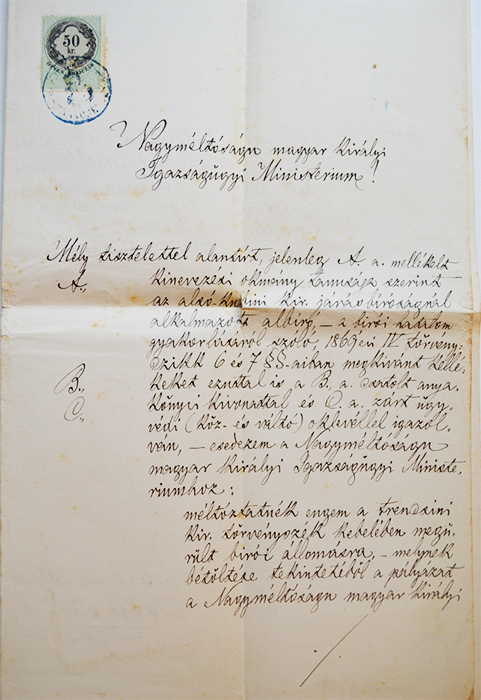 50
kr.
Nagyméltóságu magyar királyi
Igazságügyi Ministerium!
Mély tisztelettel alantirt, jelenleg A. a. mellékelt
A., kinevezési okmány tanusága szerint
az alsó-kubini kir. járásbiróságnál
alkalmazott albiró, – a birói hatalom
gyakorlásáról szóló, 1869 évi IV törvény-
czikk 6 és 7 §§-aiban megkivánt kellé-
B., keket ezuttal is a B. a. csatolt anya-
C., könyvi kivonattal és C. a. zárt ügy-
védi (köz- és váltó) oklevéllel igazol-
ván, – esedezem a Nagyméltóságu
magyar királyi Igazságügyi Ministe-
riumhoz:
méltóztatnék engem a trencsini
kir. törvényszék kebelében megü-
rült birói állomásra, – melynek
betöltése tekintetéből a pályázat
a Nagyméltóságu magyar királyi